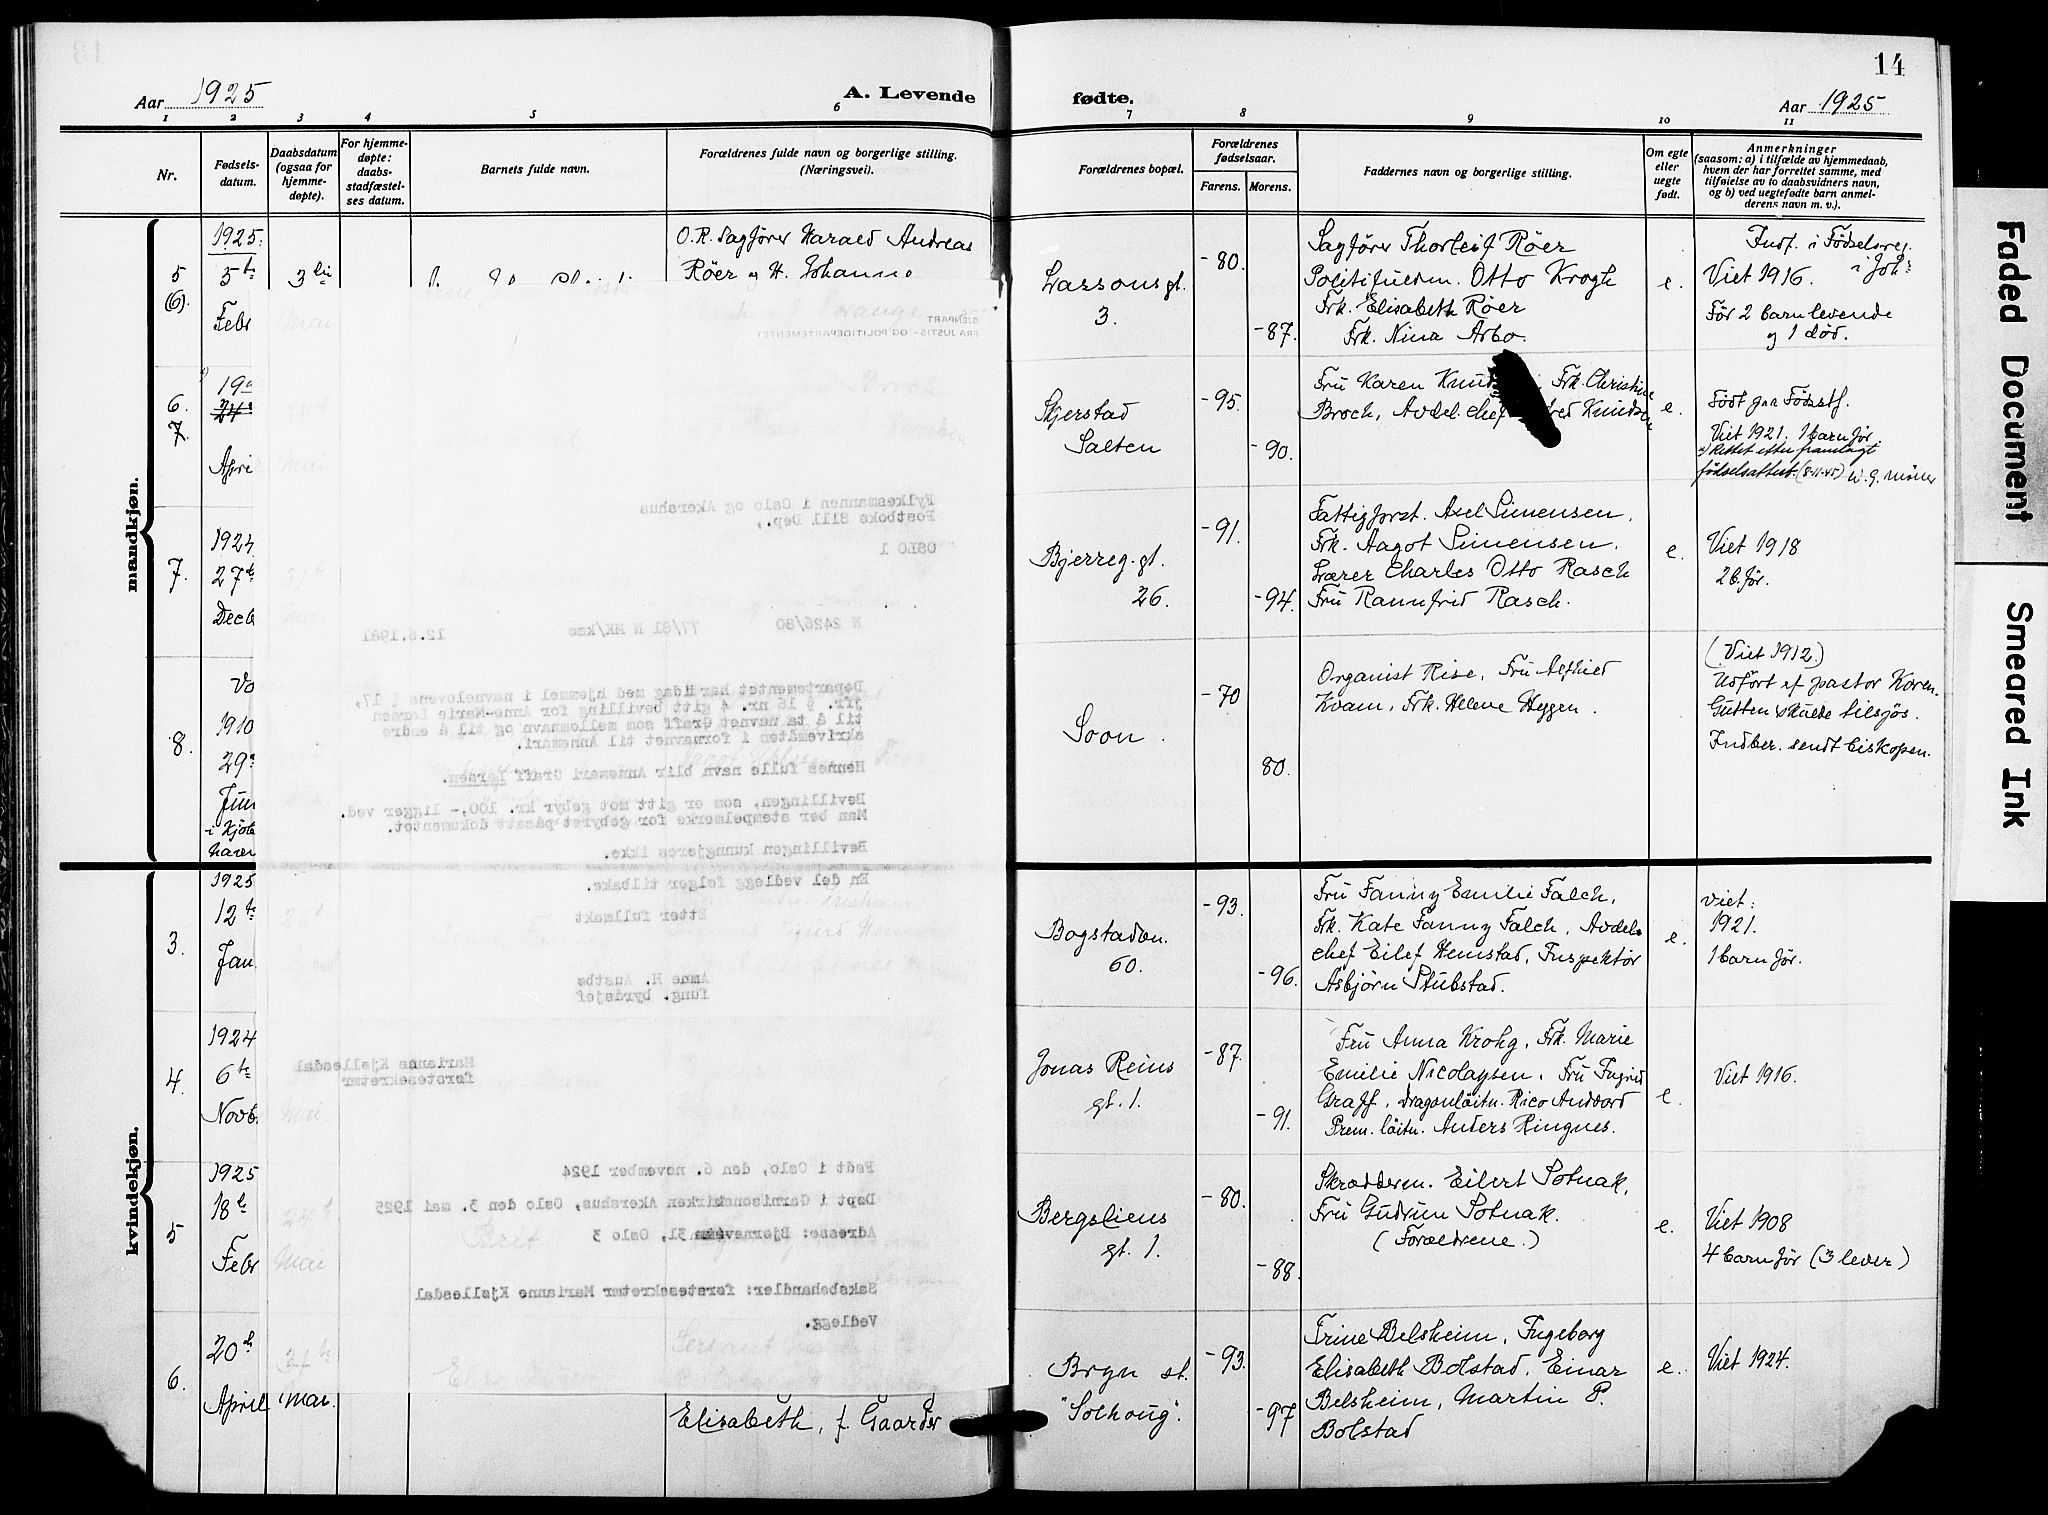 Aar 1925
A. Levende
1 2 3 4 5 6
Nr.
Fødsels-
datum.
Daabsdatum
(ogsaa for
hjemme-
døpte).
For hjemme-
døpte:
daabs-
stadfæstel-
ses datum.
Barnets fulde navn.
Forældrenes fulde navn og borgerlige stilling.
(Næringsvei).
mandkjøn.
5
(6).
1925.
5te
Febr
3die
O.R. Sagfører Harald Andreas
Røer og H. Johanne
6.
7.
19
24
April
Mai
7.
1924
27de
Decb
31te
Mai
8.
1910
29
Juni
i Kjøb
havn
GJENPART
FRA JUSTIS- OG POLITIDEPARTEMENTET
Fylkesmannen i Oslo og Akershus
Postboks 8111 Dep.,
OSLO 1
N 2426/80 77/81 N MK/kso 12.6.1981
Departementet har idag med hjemmel i navnelovens § 17,
jfr. § 16 nr. 4 gitt bevilling for Anne-Marie Larsen
til å ta navnet Graff som mellomnavn og til å endre
skrivemåten i fornavnet til Annemari.
Hennes fulle navn blir Annemari Graff Larsen.
Bevillingen, som er gitt mot gebyr kr. 100,- ligger ved.
Man ber stempelmerke for gebyret påsatt dokumentet.
Bevillingen kunngjøres ikke.
En del vedlegg følger tilbake.
Etter fullmakt
Anne H. Austbø
fung. byråsjef
Marianne Kjøllesdal
førstesekretær
Født i Oslo, den 6. november 1924
Døpt i Garnisonskirken Akershus, Oslo den 3. mai 1925
Adresse: Bjørnveien 31, Oslo 3
Saksbehandler: førstesekretær Marianne Kjøllesdal
Vedlegg.
kvindekjøn.
3.
1925
12te
Jan.
4.
1924
6te
Novb.
Mai
5
1925
18de
Febr
24de
Mai
6.
20de
April
Mai.
Elisabeth, f. Gaarder
14
fødte.
Aar 1925
7 8 9 10 11
Forældrenes bopæl.
Forældrenes
fødselsaar.
Farens. Morens.
Faddernes navn og borgerlige stilling.
Om egte
eller
uegte
født.
Anmerkninger
(saasom: a) i tilfælde av hjemmedaab,
hvem der har forrettet samme, med
tilføielse av to daabsvidners navn,
og b) ved uegtefødte barn anmel-
derens navn m. v.).
Lassonsgt.
3.
-80.
-87.
Sagfører Thorleif Røer
Politifuldm. Otto Krogh
Frk. Elisabeth Røer
Frk. Nina Arbo.
e.
Indf. i Fødselsreg.
Viet 1916.
Før 2 barn levende
og 1 død.
Skjerstad
Salten
-95.
-90.
Fru Karen Knud Frk. Christine
Broch, Avdel. chef Knudsen
e.
Viet 1921. 1 barn før.
rettet etter framlagt
fødselsattest (8-11-45)
Bjerreg. gt.
26.
-91.
-94.
Fattigforst. Axel Simensen.
Frk. Aagot Simensen.
Lærer Charles Otto Rasch
Fru Rannfrid Rasch.
e.
Viet 1918
2 b. før.
Soon.
-70
80.
Organist Rise, Fru Alfhild
Kvam, Frk. Helene Heggen.
(Viet 1912.)
Utført af pastor Koren.
Gutten skulde tilsjøs.
Indber. sendt biskopen.
Bogstadvn.
60.
-93.
-96.
Fru Fanny Emilie Falch,
Frk. Kate Fanny Falch, Avdels
chef Eilef Hemstad, Inspektør
Asbjørn Stubstad.
e.
Viet:
1921.
1 barn før.
Jonas Reins
gt. 1.
-87.
-91.
Fru Anna Krohg, Frk. Marie
Emilie Nicolaysen. Fru Ingrid
Graff, Dragonløitn. Rico Andvord
Prem. løitn. Anders Ringnes.
e.
Viet 1916.
Bergsliens
gt. 1.
-80.
-88.
Skrædderm. Eilert Solnak,
Fru Gudrun Solnak.
(Forældrene.)
e.
Viet 1908
4 barn før (3 lever)
Bryn st.
"Solhoug".
-93.
-97
Trine Belsheim, Ingeborg
Elisabeth Bolstad, Einar
Belsheim, Martin P.
Bolstad
e.
Viet 1924.
Faded Document
Smeared Ink